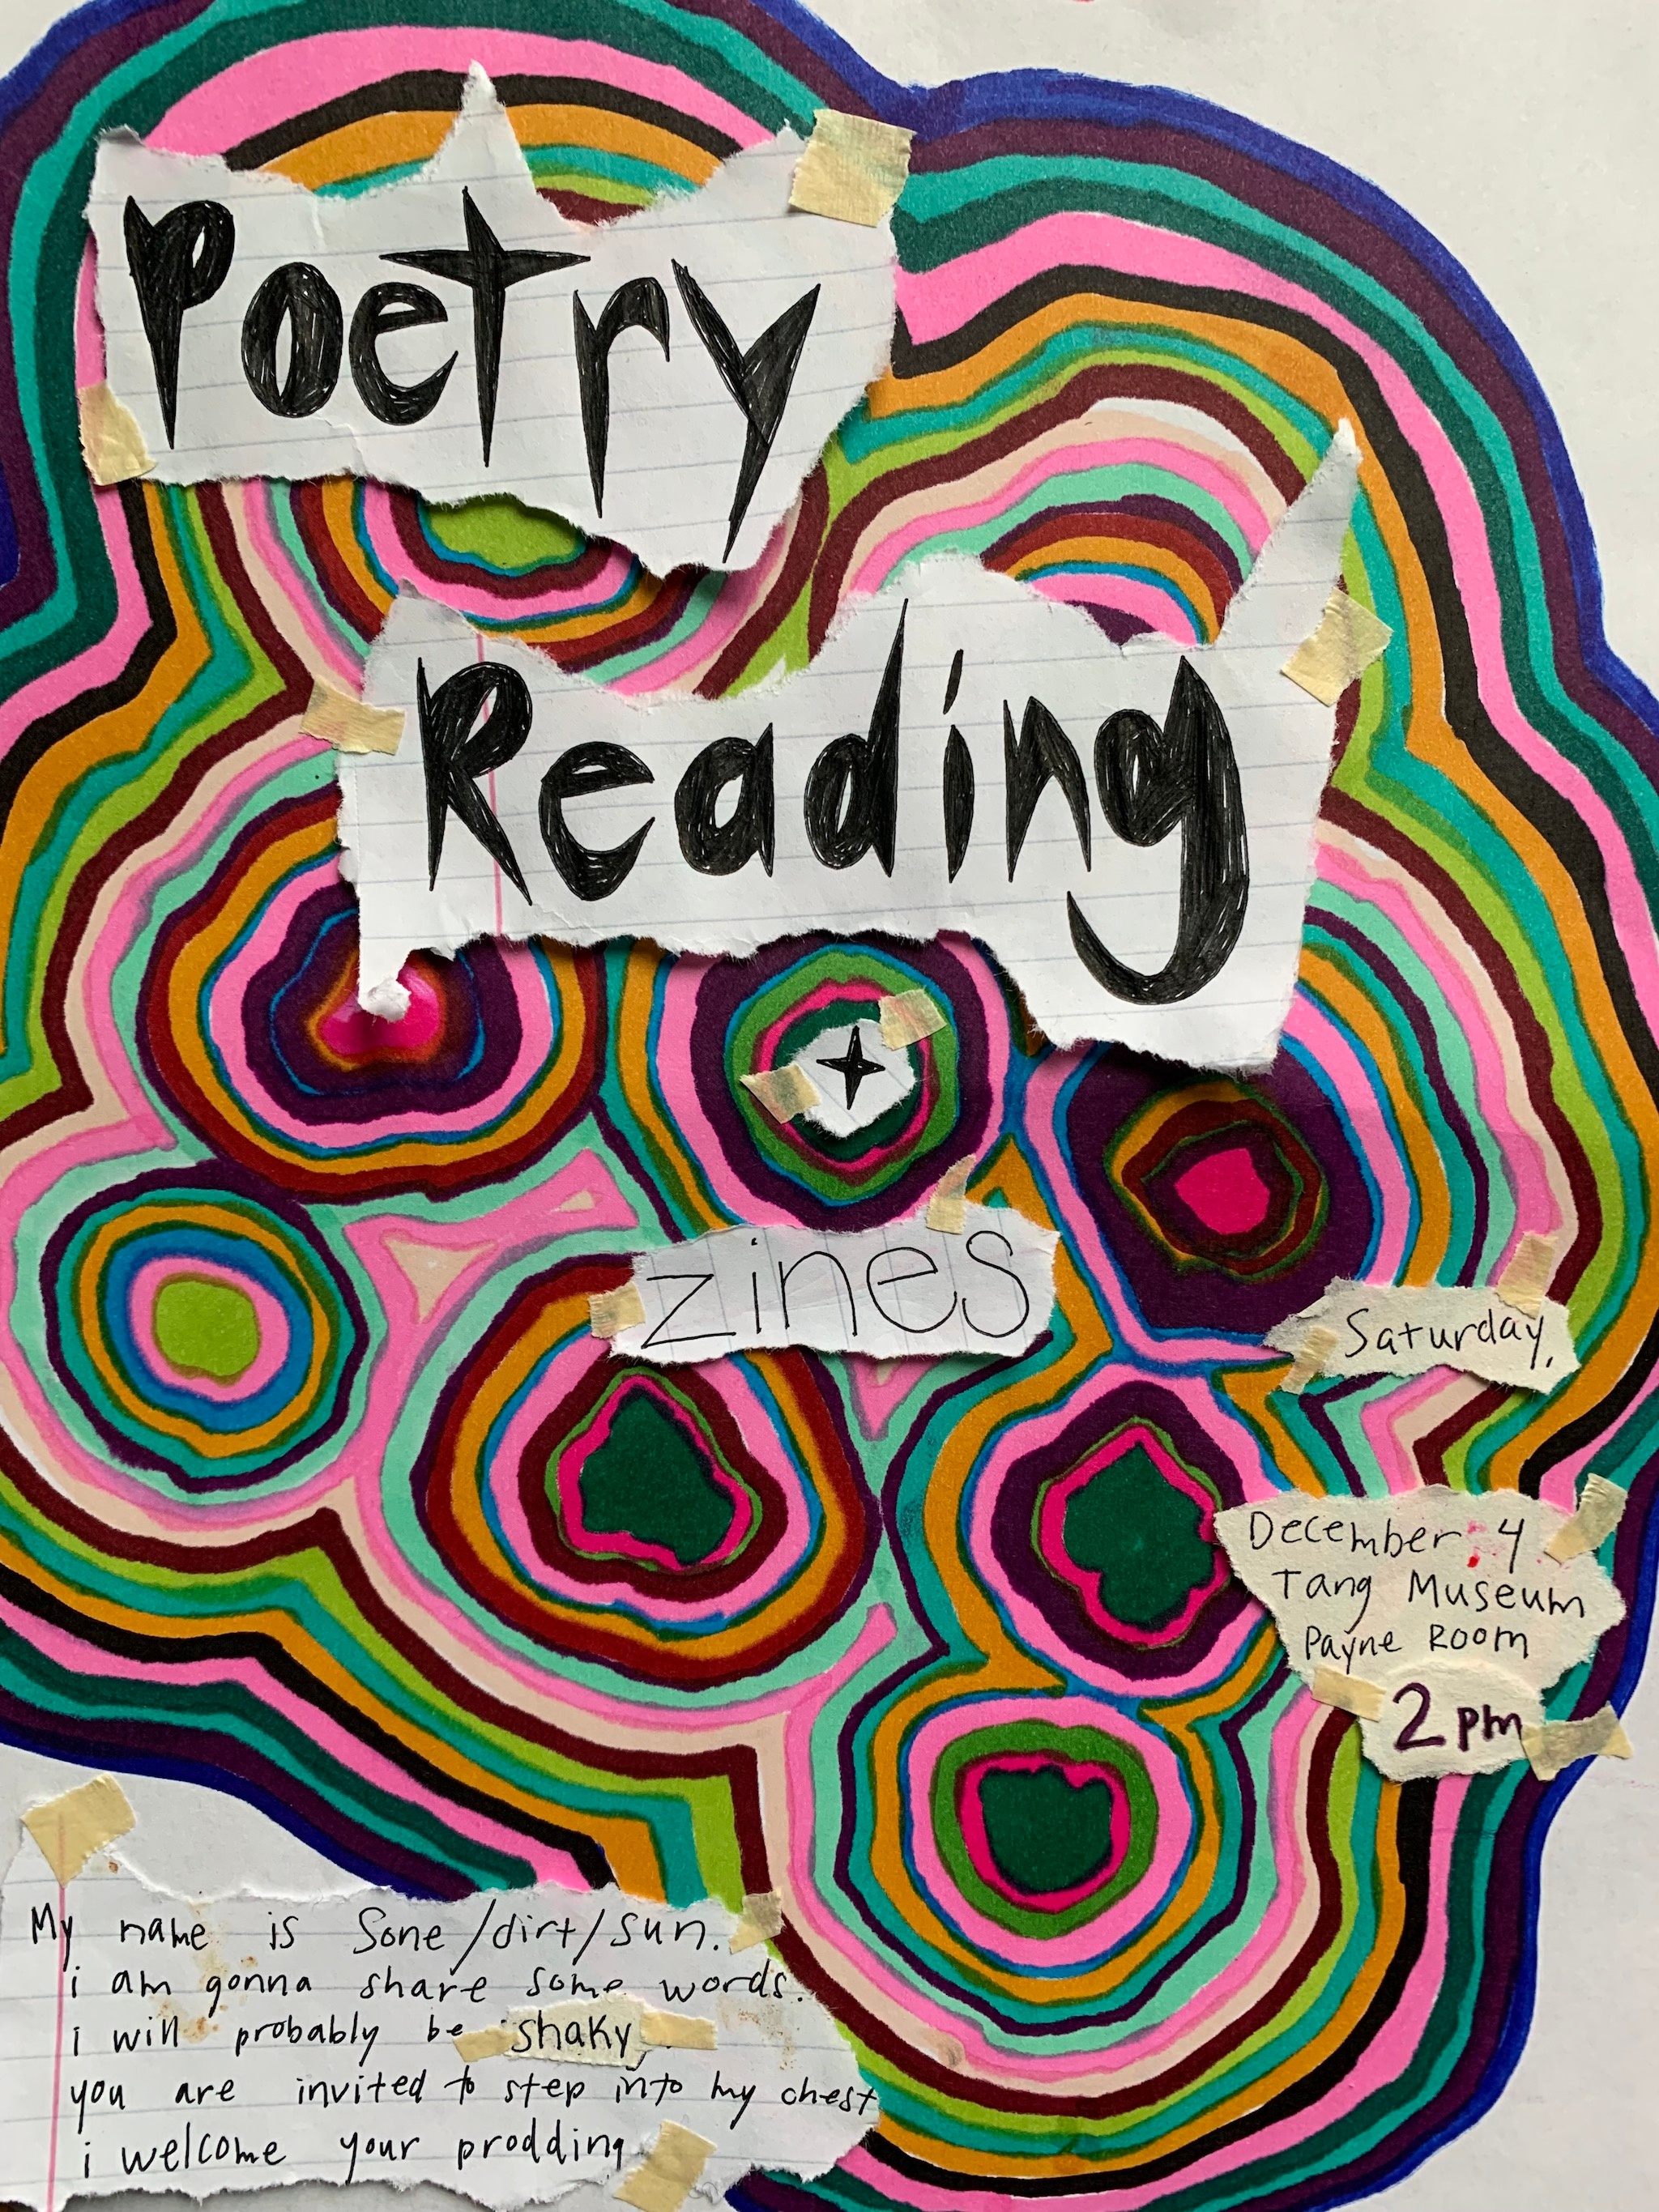 Poetry
Reading
+
zines
Saturday,
December 4
Tang Museum
Payne Room
2pm
My name is Sone/dirt/sun.
i am gonna share some words.
i will probably be shaky,
you are invited to step into my chest
i welcome your prodding